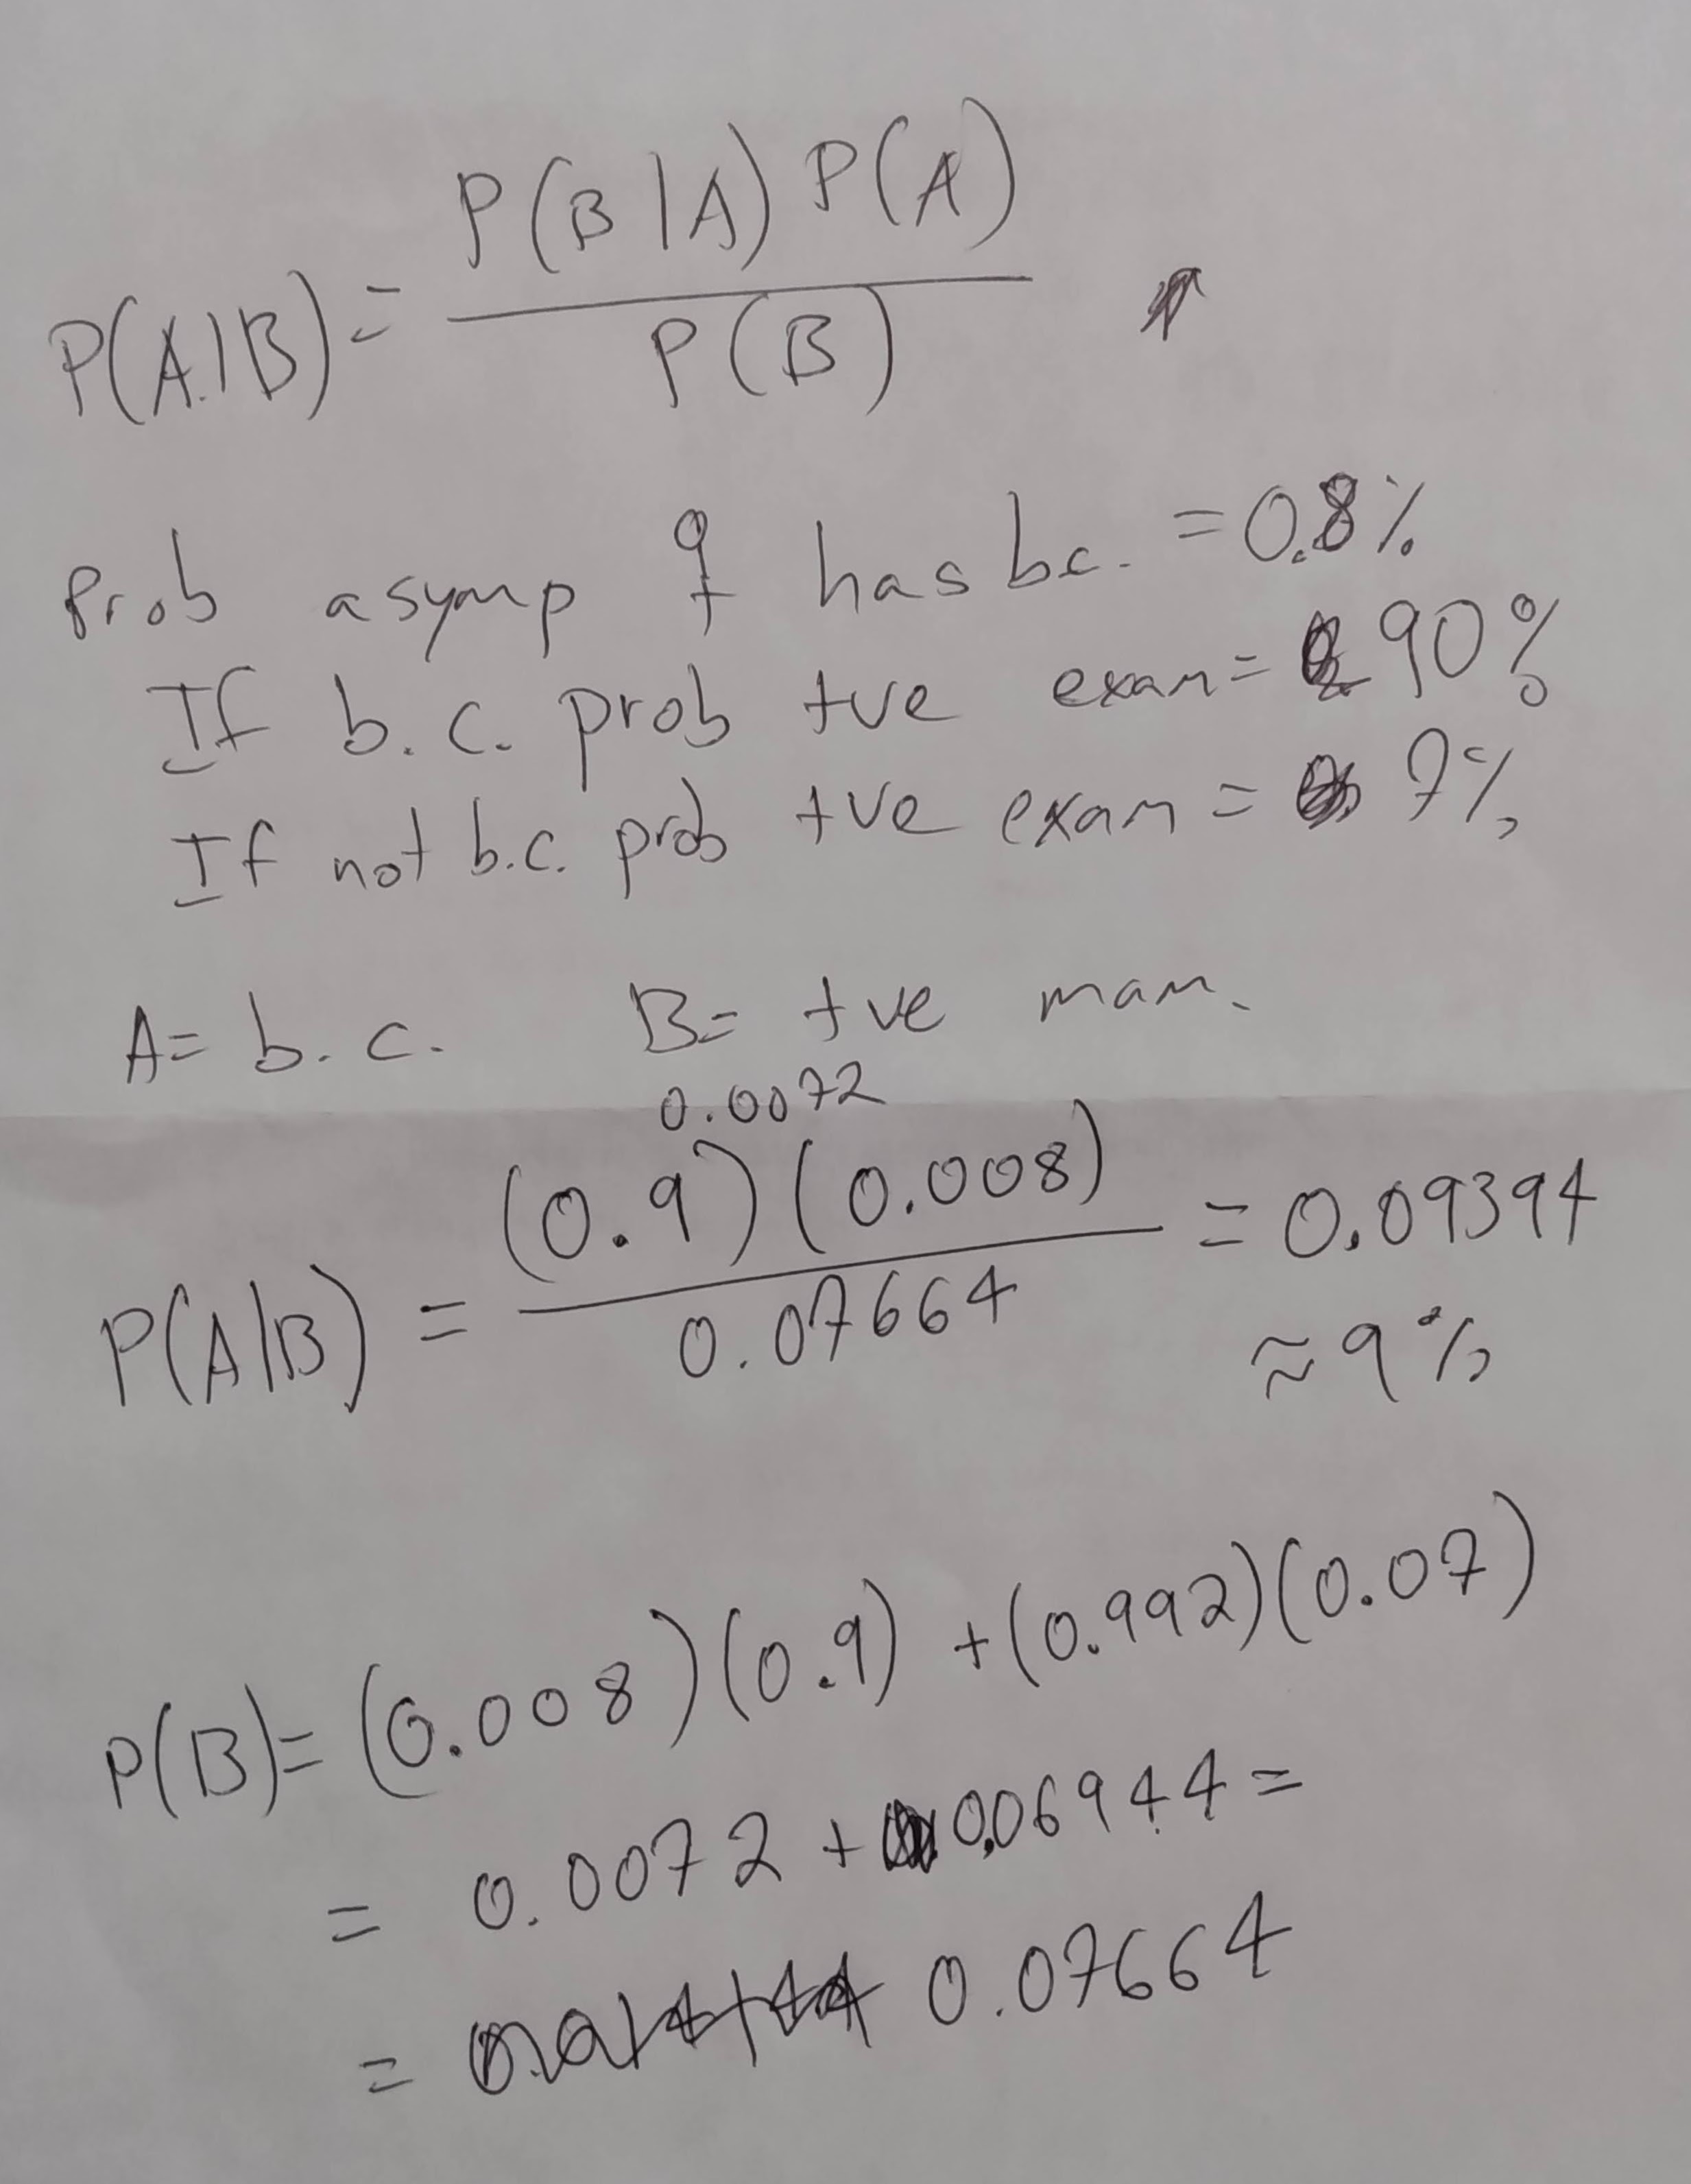 P(A|B) = P(B|A) P(A) / P(B)
Prob asymp ♀ has b.c. = 0.8%
If b.c. prob +ve exam = 90%
If not b.c. prob +ve exam = 7%
A = b.c. B = +ve mam.
0.0072
P(A|B) = (0.9)(0.008) / 0.07664 = 0.09394
≈ 9%
P(B) = (0.008)(0.9) + (0.992)(0.07)
= 0.0072 + 0.06944 =
= 0.07664